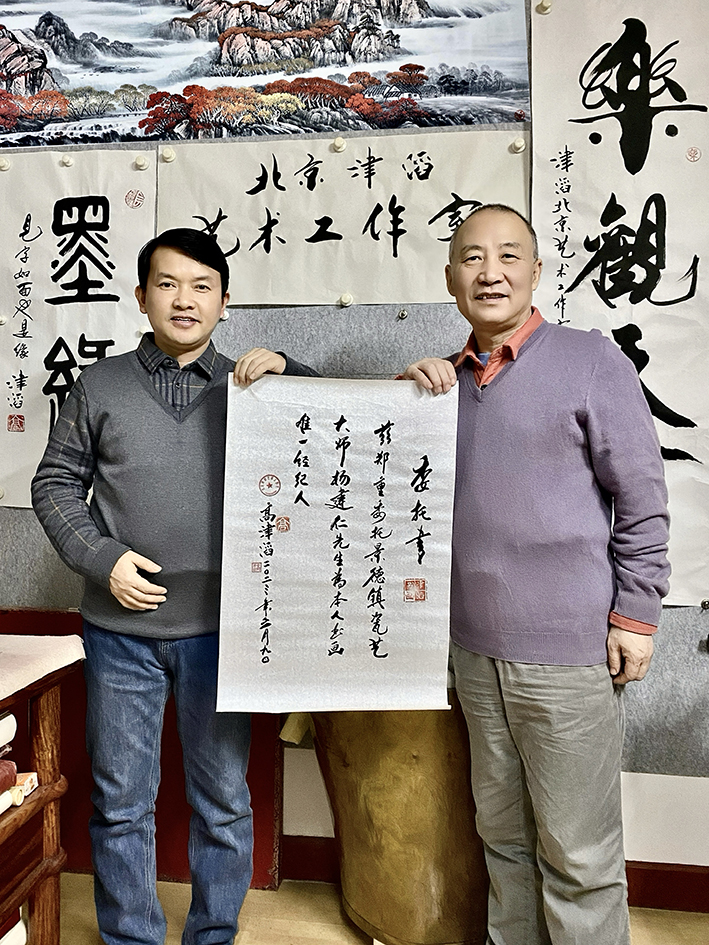 北京津滔
艺术工作室
樂觀天
津滔北京艺术工作
墨緣
见字如面也是缘
津滔
委托書
兹郑重委托景德镇瓷艺
大师杨建仁先生為本人书画
唯一经纪人
高津滔二〇二三年三月九日